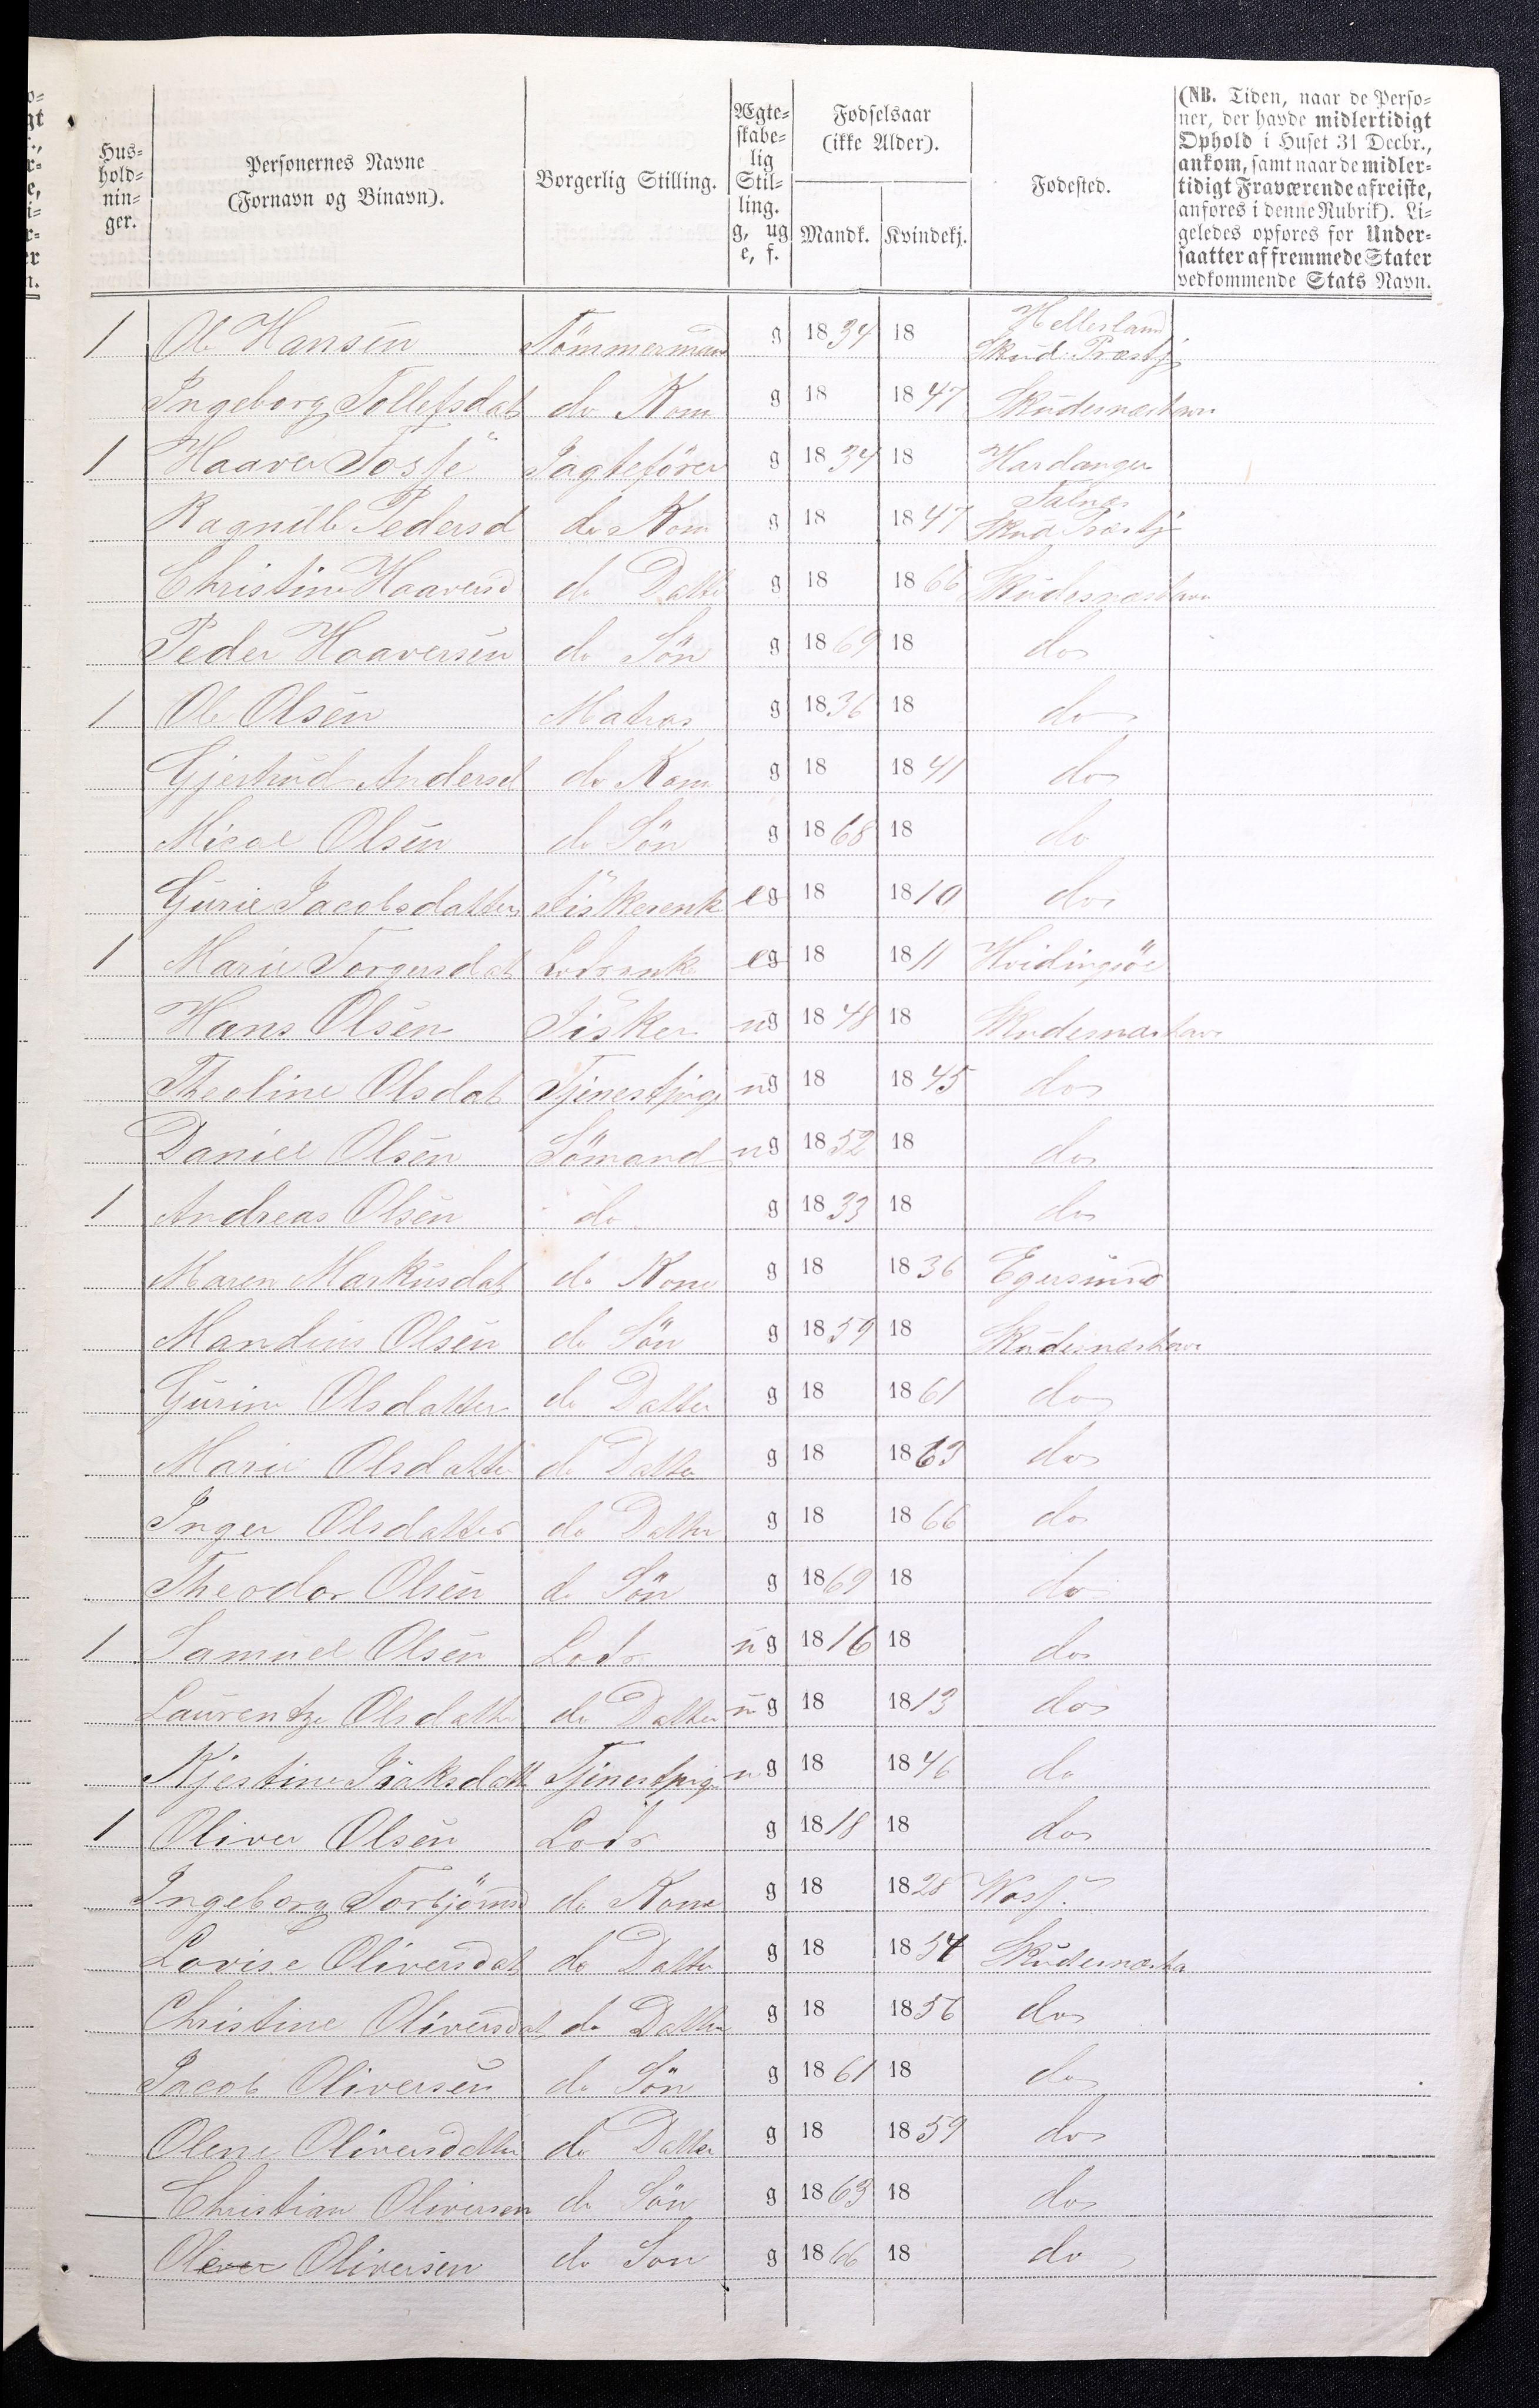 Hus=hold=nin=ger. | Personernes Navne (Fornavn og Binavn). | Borgerlig Stilling. | Ægte=skabe=lig Stil=ling. g, ug e, f. | Fødselsaar (ikke Alder). Mandk. | Kvindekj. | Fødested. | (NB. Tiden, naar de Perso=ner, der havde midlertidigt Ophold i Huset 31 Decbr., ankom, samt naar de midler=tidigt Fraværende afreiste, anføres i denne Rubrik). Li=geledes opføres for Under=saatter af fremmede Stater vedkommende Stats Navn.
1 Ole Hansen Tömmermand g 1834 18 Hellesland Skud: Præstgj
Ingeborg Tollefsdat do Kone g 18 1847 Skudesnæshavn
1 Haaver Tosje Jagtefører g 1834 18 Hardanger
Ragnild Pedersd do Kone g 18 1847 Falnes Skud Præstgj
Christine Haaversd do Datter g 18 1866 Skudesnæshavn
Peder Haaversen do Sön g 1869 18 do
1 Ole Olsen Matros g 1836 18 do
Gjertrud Andersd do Kone g 18 1841 do
Misael Olsen do Sön g 1868 18 do
Gurie Jacobsdatter Fiskerenk eg 18 1810 do
1 Marie Torgersdat Lodsenke eg 18 1811 Hvidingsöe
Hans Olsen Fisker ug 1848 18 Skudesnæshavn
Theoline Olsdat Tjenestpige ug 18 1845 do
Daniel Olsen Sömand ug 1852 18 do
1 Andreas Olsen do g 1833 18 do
Maren Markusdat do Kone g 18 1836 Egersund
Mandius Olsen do Sön g 1859 18 Skudesnæshavn
Gurine Olsdatter do Datter g 18 1861 do
Marie Olsdatter do Datter g 18 1863 do
Inger Olsdatter do Datter g 18 1866 do
Theodor Olsen do Sön g 1869 18 do
1 Samuel Olsen Lods ug 1816 18 do
Laurentze Olsdatter do Datter ug 18 1813 do
Kjestine Isaksdatt Tjenestpige ug 18 1846 do
1 Oliver Olsen Lods g 1818 18 do
Ingeborg Torbjörnsd do Kone g 18 1828
Lovise Oliversdat do Datter g 18 1854 Skudesnæsha
Christine Oliversdat do Datter g 18 1856 do
Jacob Oliversen do Sön g 1861 18 do
Olene Oliversdatter do Datter g 18 1859 do
Christian Oliversen do Sön g 1863 18 do
Oliversen do Son g 1866 18 do